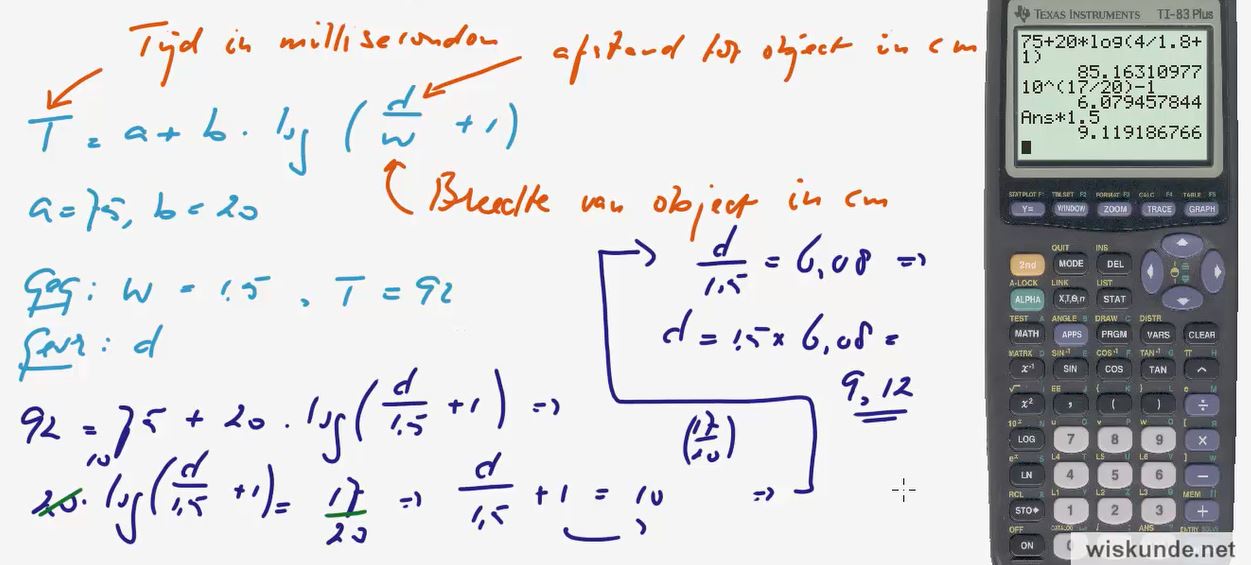 Tijd in milliseconden
afstand tot object in cm
T = a + b · log (d/w + 1)
a = 75, b = 20
Breedte van object in cm
Geg: w = 1.5, T = 92
Gevr: d
92 = 75 + 20 · log(d/1.5 + 1) =>
20 · 10log(d/1,5 + 1) = 17/20 => d/1,5 + 1 = 10 (17/20) =>
d/1.5 = 6,08 =>
d = 1.5 × 6,08 =
9,12
TEXAS INSTRUMENTS TI-83 Plus
75+20*log(4/1.8+
1)
85.16310977
10^(17/20)-1
6.079457844
Ans*1.5
9.119186766
STATPLOT F1 TBLSET F2 FORMAT F3 CALC F4 TABLE F5
Y= WINDOW ZOOM TRACE GRAPH
QUIT INS
2nd MODE DEL
A-LOCK LINK LIST
ALPHA X,T,θ,n STAT
TEST A ANGLE B DRAW C DISTR
MATH APPS PRGM VARS CLEAR
MATRX D SIN⁻¹ E COS⁻¹ F TAN⁻¹ G π H
x⁻¹ SIN COS TAN ^
√ I EE J { K } L e M
x² , ( ) ÷
10ˣ N u O v P w Q [ R
LOG 7 8 9 ×
eˣ S L4 T L5 U L6 V ] W
LN 4 5 6 −
RCL X L1 Y L2 Z L3 θ MEM "
STO▸ 1 2 3 +
OFF CATALOG ANS
ON
wiskunde.net